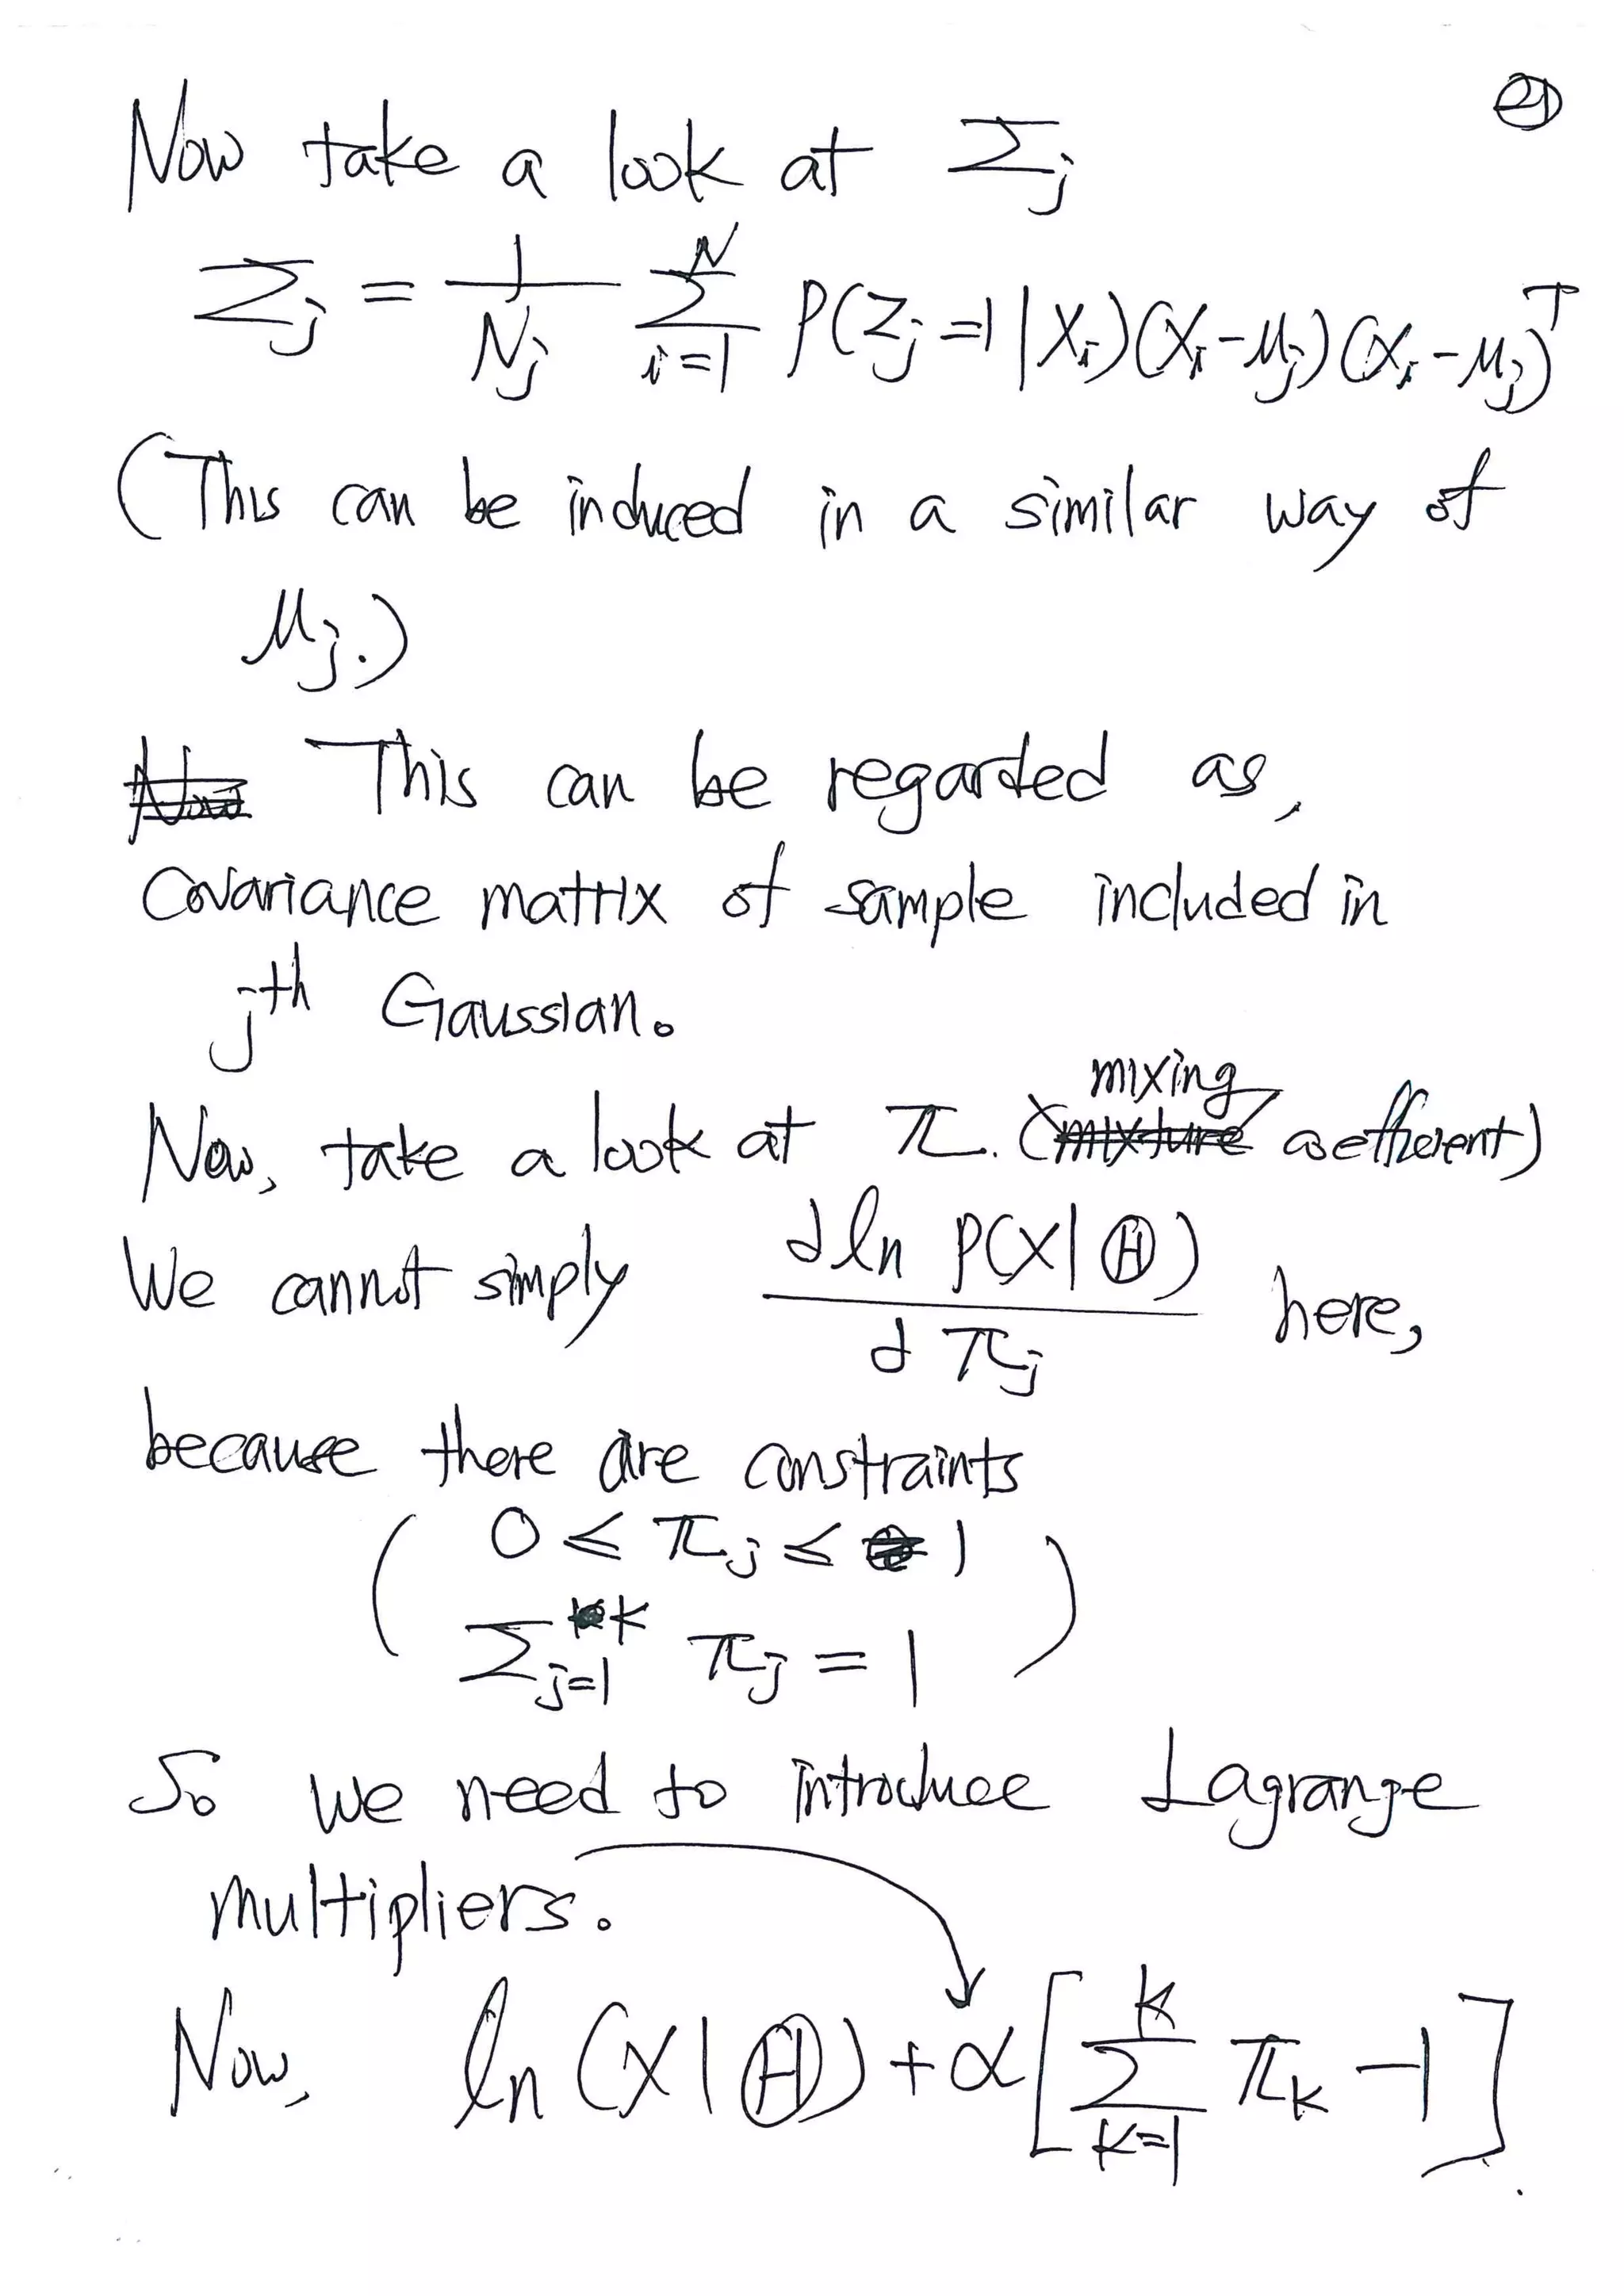 ㉑
Now take a look at Σj
Σj = 1/Nj Σ_{i=1}^{N} P(Zj=1|Xi)(Xi-μj)(Xi-μj)^T
(This can be induced in a similar way of
μj.)
This can be regarded as,
Covariance matrix of sample included in
jth Gaussian.
Now, take a look at π. (mixing coefficient)
We cannot simply ∂ln P(X|Θ) / ∂πj here,
because there are constraints
( 0 ≤ πj ≤ 1
Σ_{j=1}^{K} πj = 1 )
So we need to introduce Lagrange
multipliers.
Now, ln(X|Θ)+α[Σ_{k=1}^{K} πk -1]